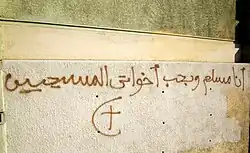 انا مسلم وبحب أخواتى المسيحيين